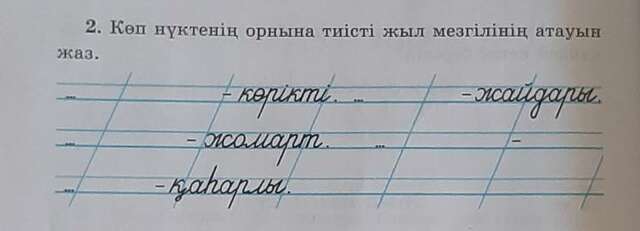 2. Көп нүктенің орнына тиісті жыл мезгілінің атауын
жаз.
... - көрікті. ... - жайдары.
... - жомарт. ... -
... - қаһарлы.